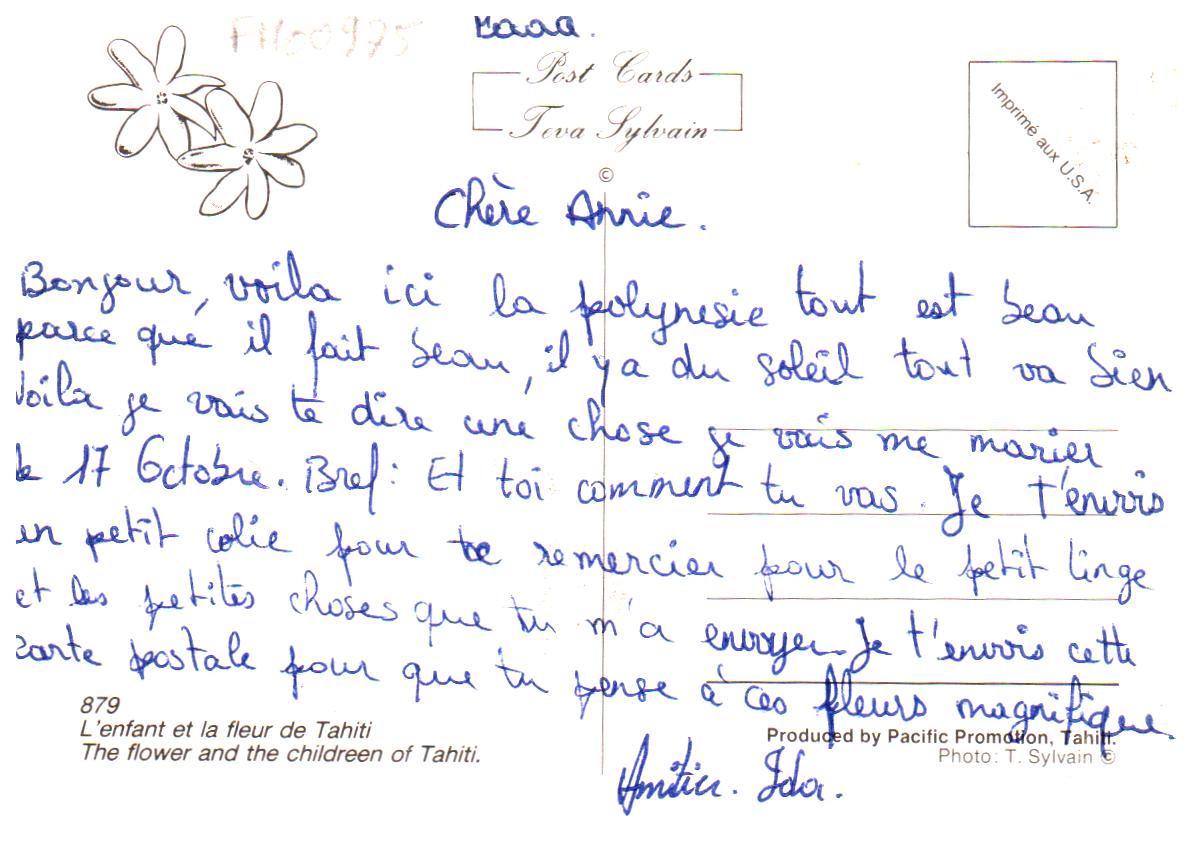 FH00975
Post Cards
Teva Sylvain
©
Imprimé aux U.S.A.
Chère Annie.
Bonjour, voila ici la polynesie tout est beau
parce que il fait beau, il y a du soleil tout va bien
Voila je vais te dire une chose je vais me marier
le 17 Octobre. Bref: Et toi comment tu vas. Je t'envois
un petit colie pour te remercier pour le petit linge
et les petites choses que tu m'a envoyer. Je t'envois cette
carte postale pour que tu pense à ces fleurs magnifique.
879
L'enfant et la fleur de Tahiti
The flower and the childreen of Tahiti.
Produced by Pacific Promotion, Tahiti.
Photo: T. Sylvain ©
Amitier. Ida.